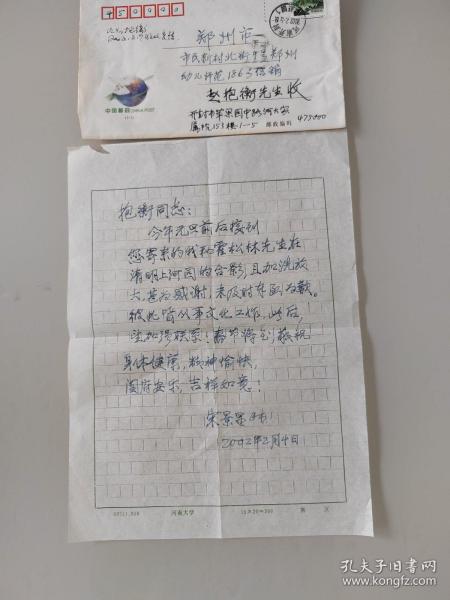 450000
郑州市
市民新村北街1号郑州
幼儿师范186号信箱
赵抱衡先生收
中国邮政 CHINA POST
开封市苹果园中路河大家
属院153楼1-5 邮政编码 475000
抱衡同志：
今年元旦前后接到
您寄来的我和霍松林先生在
清明上河园的合影，且加洗放
大，甚为感谢，未及时奉函为歉。
彼此皆从事文化工作，此后，
望加强联系！春节将到，敬祝
身体健康，精神愉快，
阖府安乐，吉祥如意！
宋景昌
2002年2月4日
河南大学
15×20=300
第 页
孔夫子旧书网
www.kongfz.com